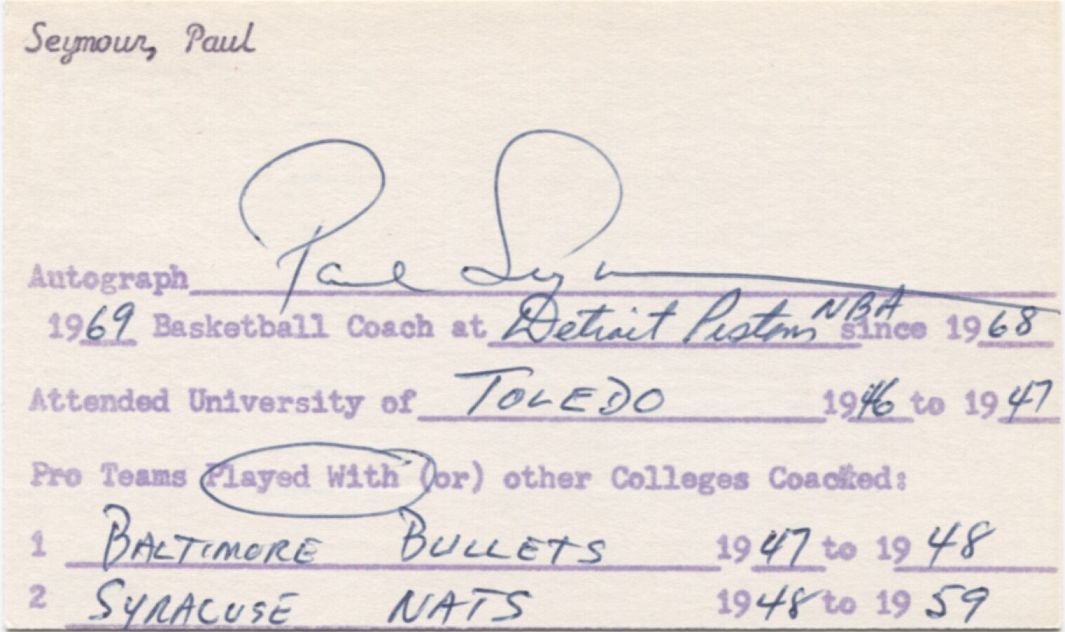 Seymour, Paul
Autograph Paul Seymour
1969 Basketball Coach at Detroit Pistons NBA since 1968
Attended University of TOLEDO 1946 to 1947
Pro Teams Played With (or) other Colleges Coached:
1 BALTIMORE BULLETS 1947 to 1948
2 SYRACUSE NATS 1948 to 1959